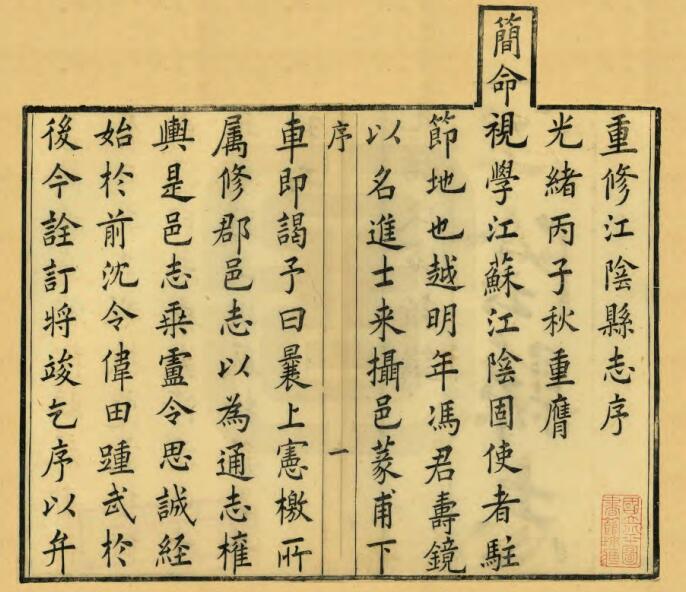 重修江陰縣志序
光緒丙子秋重膺
簡命視學江蘇江陰固使者駐
節地也越明年馮君壽鏡
以名進士来攝邑篆甫下
序 一
車即謁予曰曩上憲檄所
属修郡邑志以為通志權
輿是邑志乗盧令思誠經
始於前沈令偉田踵武於
後今詮訂將竣乞序以弁